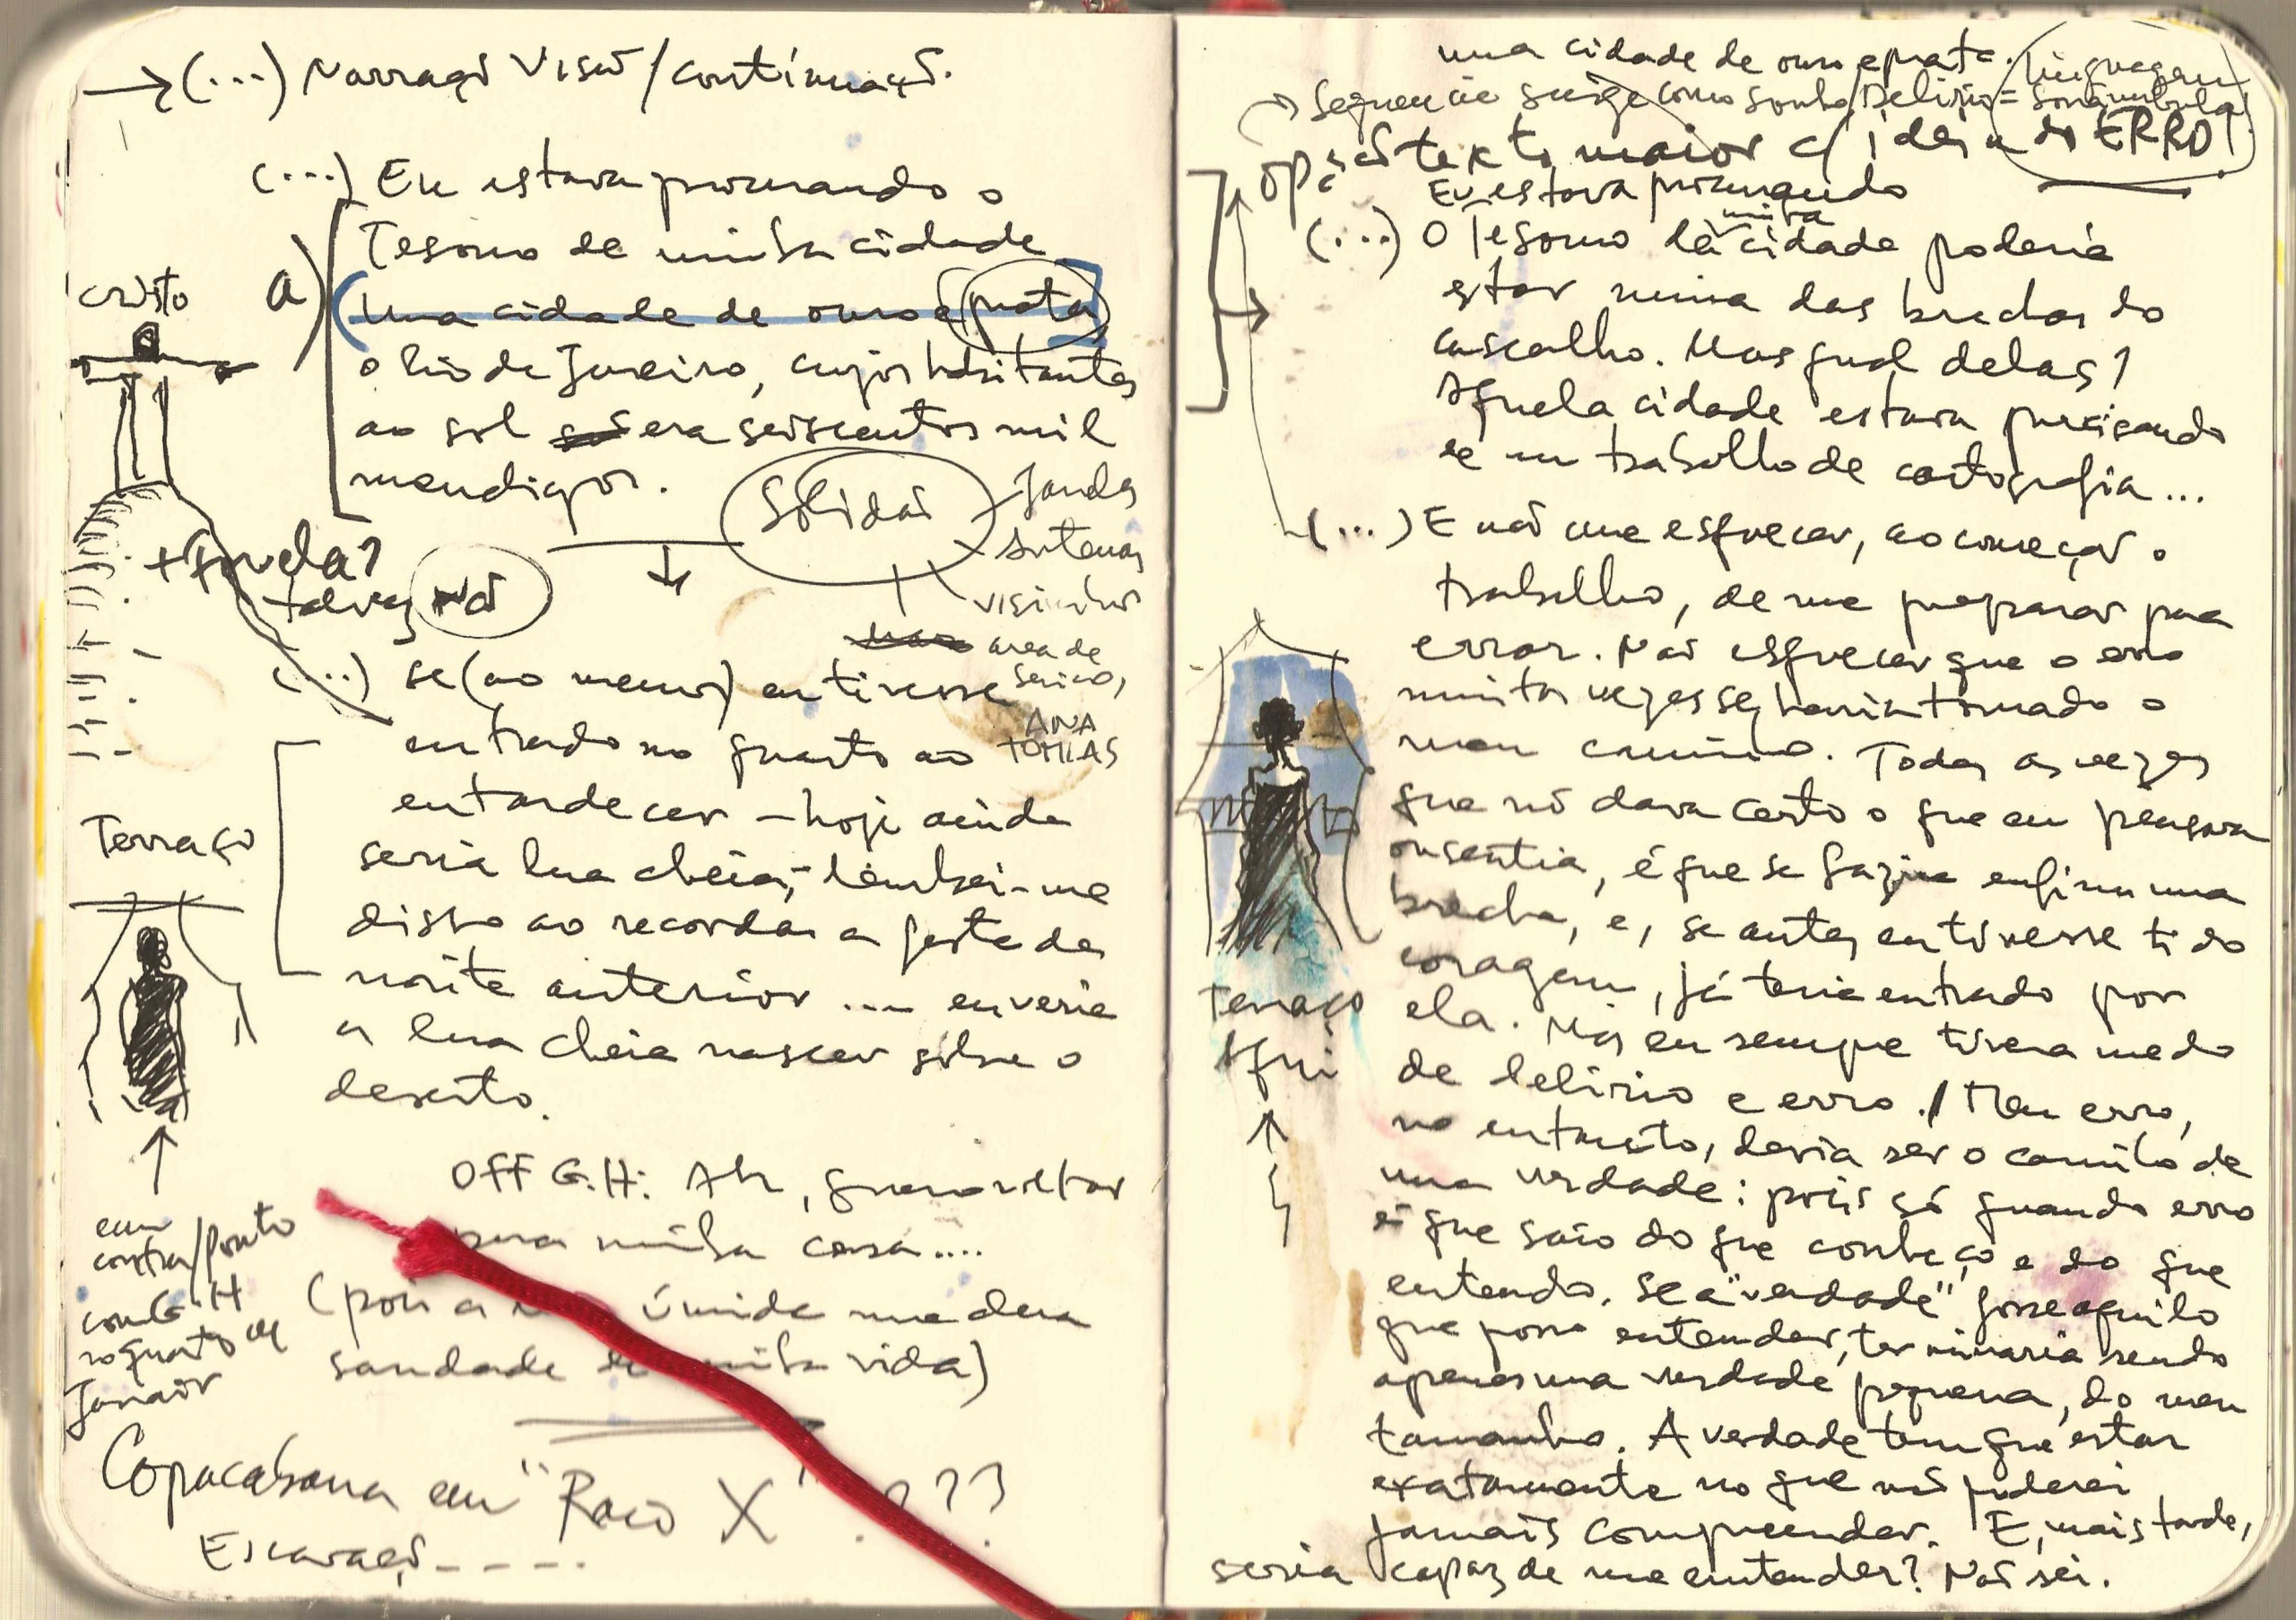 →(...) Narração Visão/continuação.
(...) Eu estava procurando o
a) Tesouro de minha cidade
(uma cidade de ouro e prata)
o Rio de Janeiro, cujos habitantes
ao sol era seiscentos mil
mendigos.
cristo
Solidão
Janelas
Antenas
visinhos
area de
serviço,
ANA
TOMIAS
+ favela?
talvez Não
(...) se (ao menos) eu tivesse
entrado no quarto ao
entardecer – hoje ainda
seria lua cheia, – lembrei-me
disso ao recordar a festa da
noite anterior ... eu veria
a lua cheia nascer sobre o
deserto.
Terraço
em
contra/ponto
com G.H
no quarto de
Janair
OFF G.H: Ah, quero voltar
para minha casa....
(pois a úmida me dera
saudade de minha vida)
Copacabana em "Raio X" ???
Escavação-----
uma cidade de ouro e prata.
→ Sequencia surge como sonho/Delirio = linguagem
sonambula!
opção texto maior c/ ideia do ERRO!
Eu estava procurando
(...) O Tesouro da minha cidade poderia
estar numa das brechas do
cascalho. Mas qual delas?
Aquela cidade estava precisando
de um trabalho de cartografia...
(...) E não me esquecer, ao começar o
trabalho, de me preparar para
errar. Não esquecer que o erro
muitas vezes se havia tornado o
meu caminho. Todas as vezes
que não dava certo o que eu pensava
ou sentia, é que se fazia enfim uma
brecha, e, se antes eu tivesse tido
coragem, já teria entrado por
ela. Mas eu sempre tivera medo
de delirio e erro./ Meu erro,
no entanto, devia ser o caminho de
uma verdade: pois só quando erro
é que saio do que conheço e do que
entendo. Se a "verdade" fosse aquilo
que posso entender, terminaria sendo
apenas uma verdade pequena, do meu
tamanho. A verdade tem que estar
exatamente no que não poderei
jamais compreender. E, mais tarde,
seria capaz de me entender? Não sei.
Terraço
Aqui